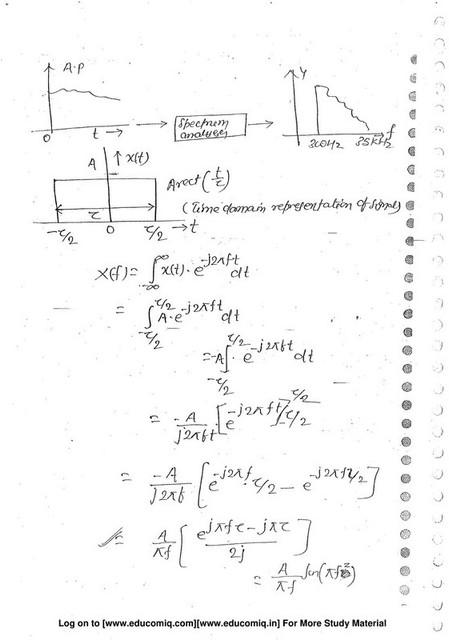 A.P
0 t →
Spectrum analyser
Y
300Hz 3.5kHz f
A ↑ x(t)
τ
-τ/2 0 τ/2 → t
A rect(t/τ)
(Time domain representation of signal)
X(f) = ∫_{-∞}^{∞} x(t) · e^{-j2πft} dt
= ∫_{-τ/2}^{τ/2} A · e^{-j2πft} dt
= A ∫_{-τ/2}^{τ/2} · e^{-j2πft} dt
= -A/j2πft [e^{-j2πft}]_{-τ/2}^{τ/2}
= -A/j2πf [e^{-j2πf·τ/2} - e^{-j2πfτ/2}]
= A/πf [e^{jπfτ - jπτ}/2j]
= A/πf Sin(πf
Log on to [www.educomiq.com][www.educomiq.in] For More Study Material